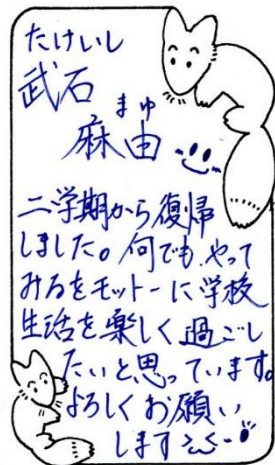 たけいし
武石
まゆ
麻由
二学期から復帰
しました。何でも、やって
みるをモットーに学校
生活を楽しく過ごし
たいと思っています。
よろしくお願い
します